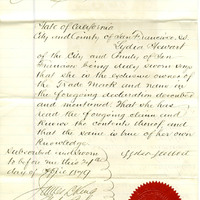 State of California
City and County of San Francisco, S.S.
Lydia Stewart
of the City and County of San
Francisco, being duly sworn says
that she is the exclusive owner of
the Trade Mark and name in
the foregoing declaration described
and mentioned. That she has
read the foregoing claim and
knows the contents thereof and
that the same is true of her own
knowledge.
Subscribed and sworn
to before me this 24th
day of April 1879